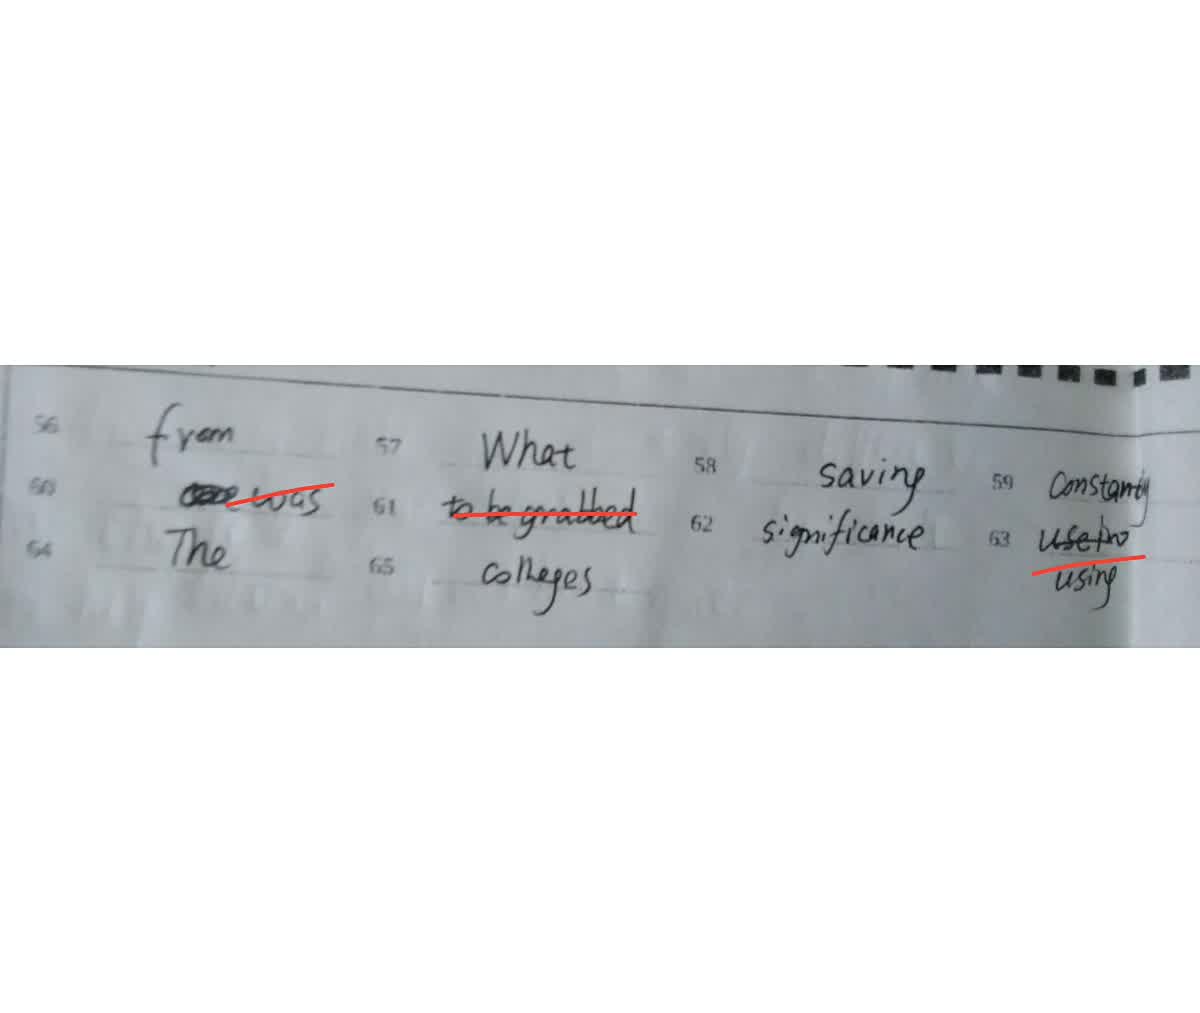 56 from 57 What 58 saving 59 Constantly
60 was 61 to be grabbed 62 significance 63
64 The 65 colleges using